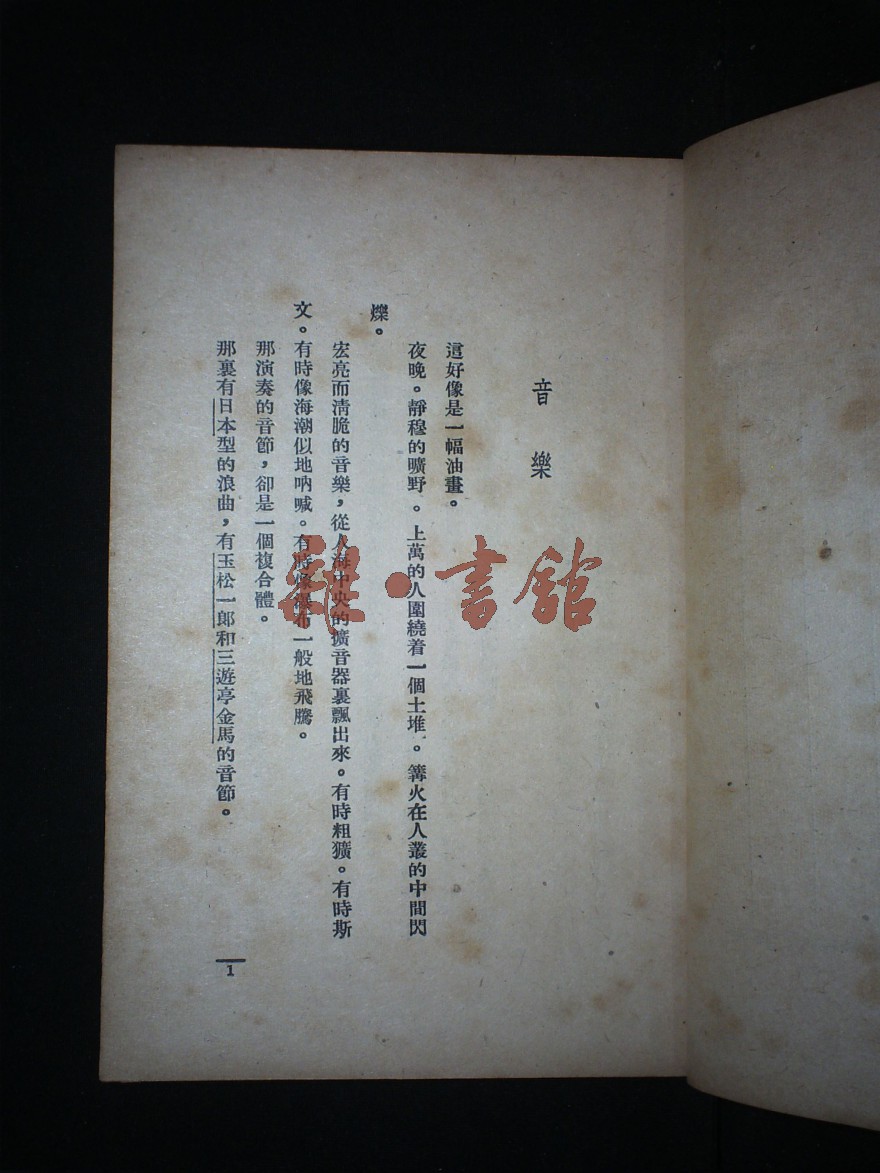 音樂
這好像是一幅油畫。
夜晚。靜穆的曠野。上萬的人圍繞着一個土堆。篝火在人叢的中間閃
爍。
宏亮而淸脆的音樂，從人海中央的擴音器裏飄出來。有時粗獷。有時斯
文。有時像海潮似地吶喊。有時像瀑布一般地飛騰。
那演奏的音節，卻是一個複合體。
那裏有日本型的浪曲，有玉松一郞和三遊亭金馬的音節。
1
雜·書館